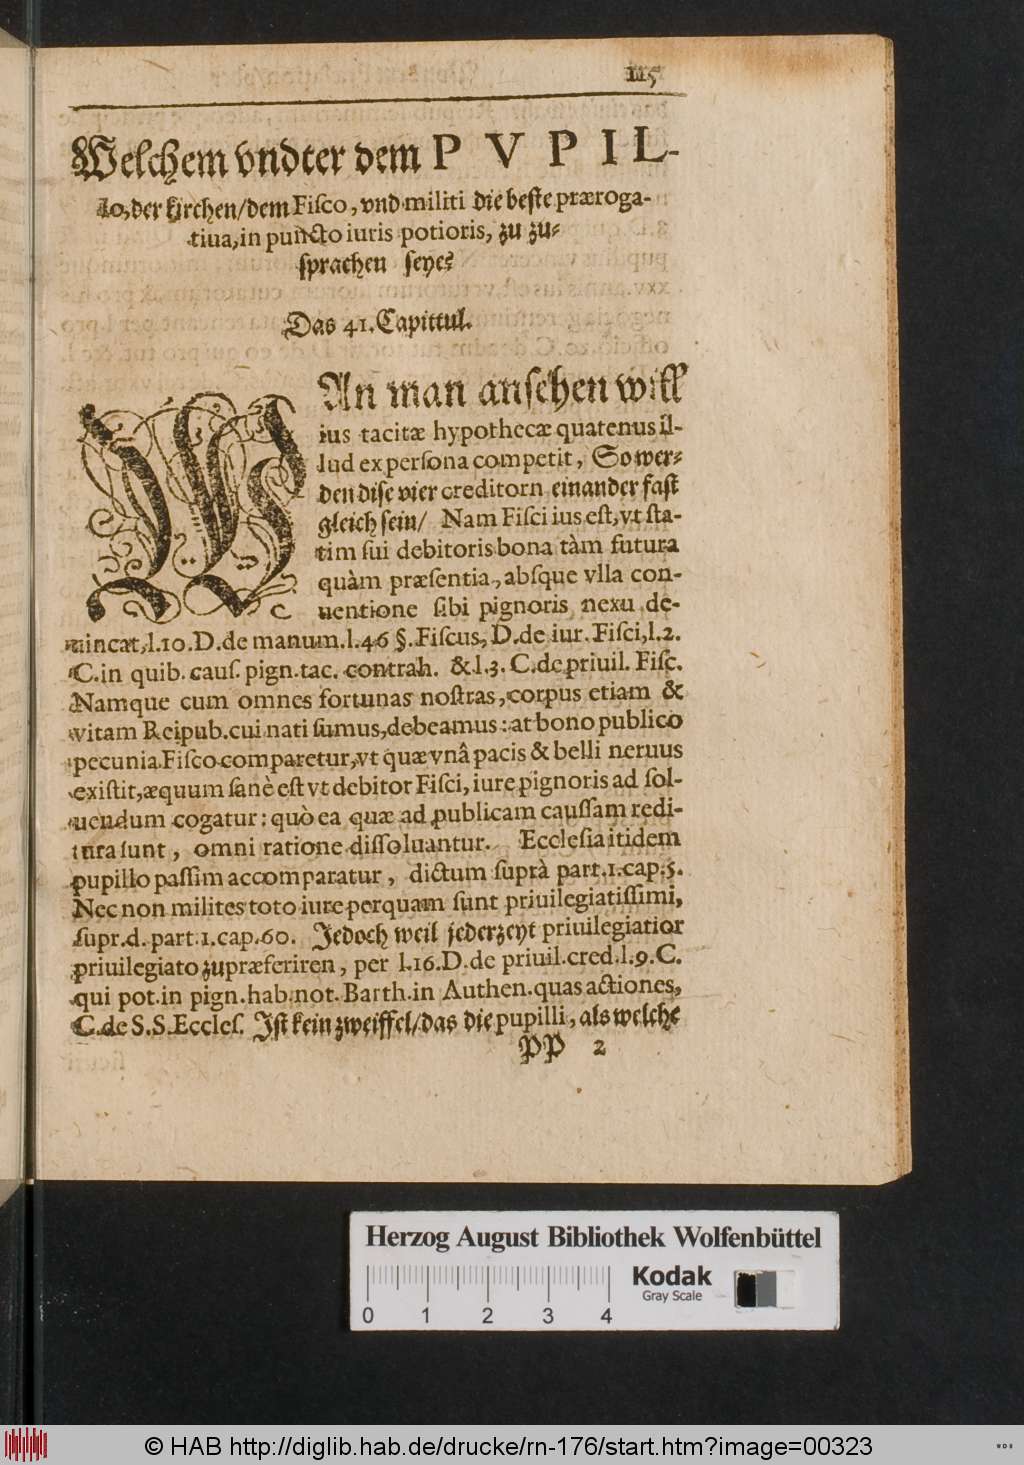 115
Welchem vndter dem PVPIL-
lo, der kirchen/dem Fisco, vnd militi die beste præroga-
tiua, in puncto iuris potioris, zu zu-
sprachen seye?
Das 41. Capittul.
WAn man ansehen will
ius tacitæ hypothecæ quatenus il-
lud ex persona competit, So wer-
den dise vier creditorn einander fast
gleich sein/ Nam Fisci ius est, vt sta-
tim sui debitoris bona tàm futura
quàm præsentia, absque vlla con-
uentione sibi pignoris nexu de-
uincat, l.10. D. de manum. l.46 §. Fiscus, D. de iur. Fisci, l.2.
C. in quib. caus. pign. tac. contrah. & l.3. C. de priuil. Fisc.
Namque cum omnes fortunas nostras, corpus etiam &
vitam Reipub. cui nati sumus, debeamus: at bono publico
pecunia Fisco comparetur, vt quæ vnâ pacis & belli neruus
existit, æquum sanè est vt debitor Fisci, iure pignoris ad sol-
uendum cogatur: quò ea quæ ad publicam caussam redi-
tura sunt, omni ratione dissoluantur. Ecclesia itidem
pupillo passim accomparatur, dictum suprà part.1. cap.5.
Nec non milites toto iure perquam sunt priuilegiatissimi,
supr. d. part.1. cap.60. Jedoch weil jederzeyt priuilegiatior
priuilegiato zupræferiren, per l.16. D. de priuil. cred. l.9. C.
qui pot. in pign. hab. not. Barth. in Authen. quas actiones,
C. de S. S. Eccles. Ist kein zweiffel/das die pupilli, als welche
PP 2
Herzog August Bibliothek Wolfenbüttel
Kodak
Gray Scale
0 1 2 3 4
© HAB http://diglib.hab.de/drucke/rn-176/start.htm?image=00323